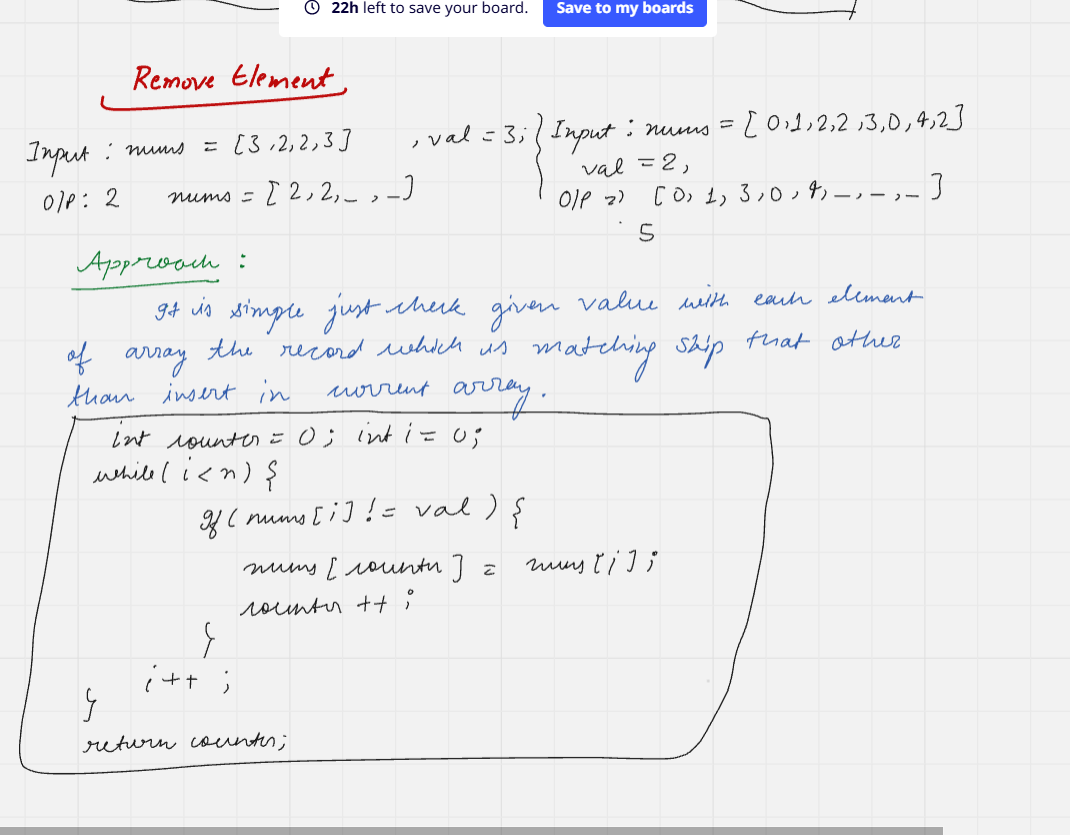 22h left to save your board. Save to my boards
Remove Element
Input : nums = [3,2,2,3] , val = 3;
O/P: 2 nums = [2,2,_,_]
Input : nums = [0,1,2,2,3,0,4,2]
val = 2,
O/P => [0, 1, 3, 0, 4, _, _, _]
5
Approach :
It is simple just check given value with each element
of array the record which is matching skip that other
than insert in current array.
int counter = 0; int i = 0;
while( i < n) {
if( nums[i] != val ) {
nums [counter] = nums[i];
counter ++ ;
}
i++ ;
}
return counter;